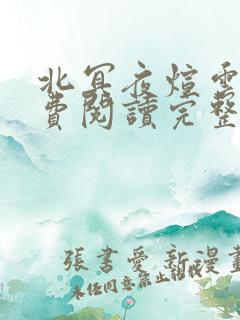 北冥夜煊雲
費閱讀完整
張書愛新漫畫
未任同意禁止轉載